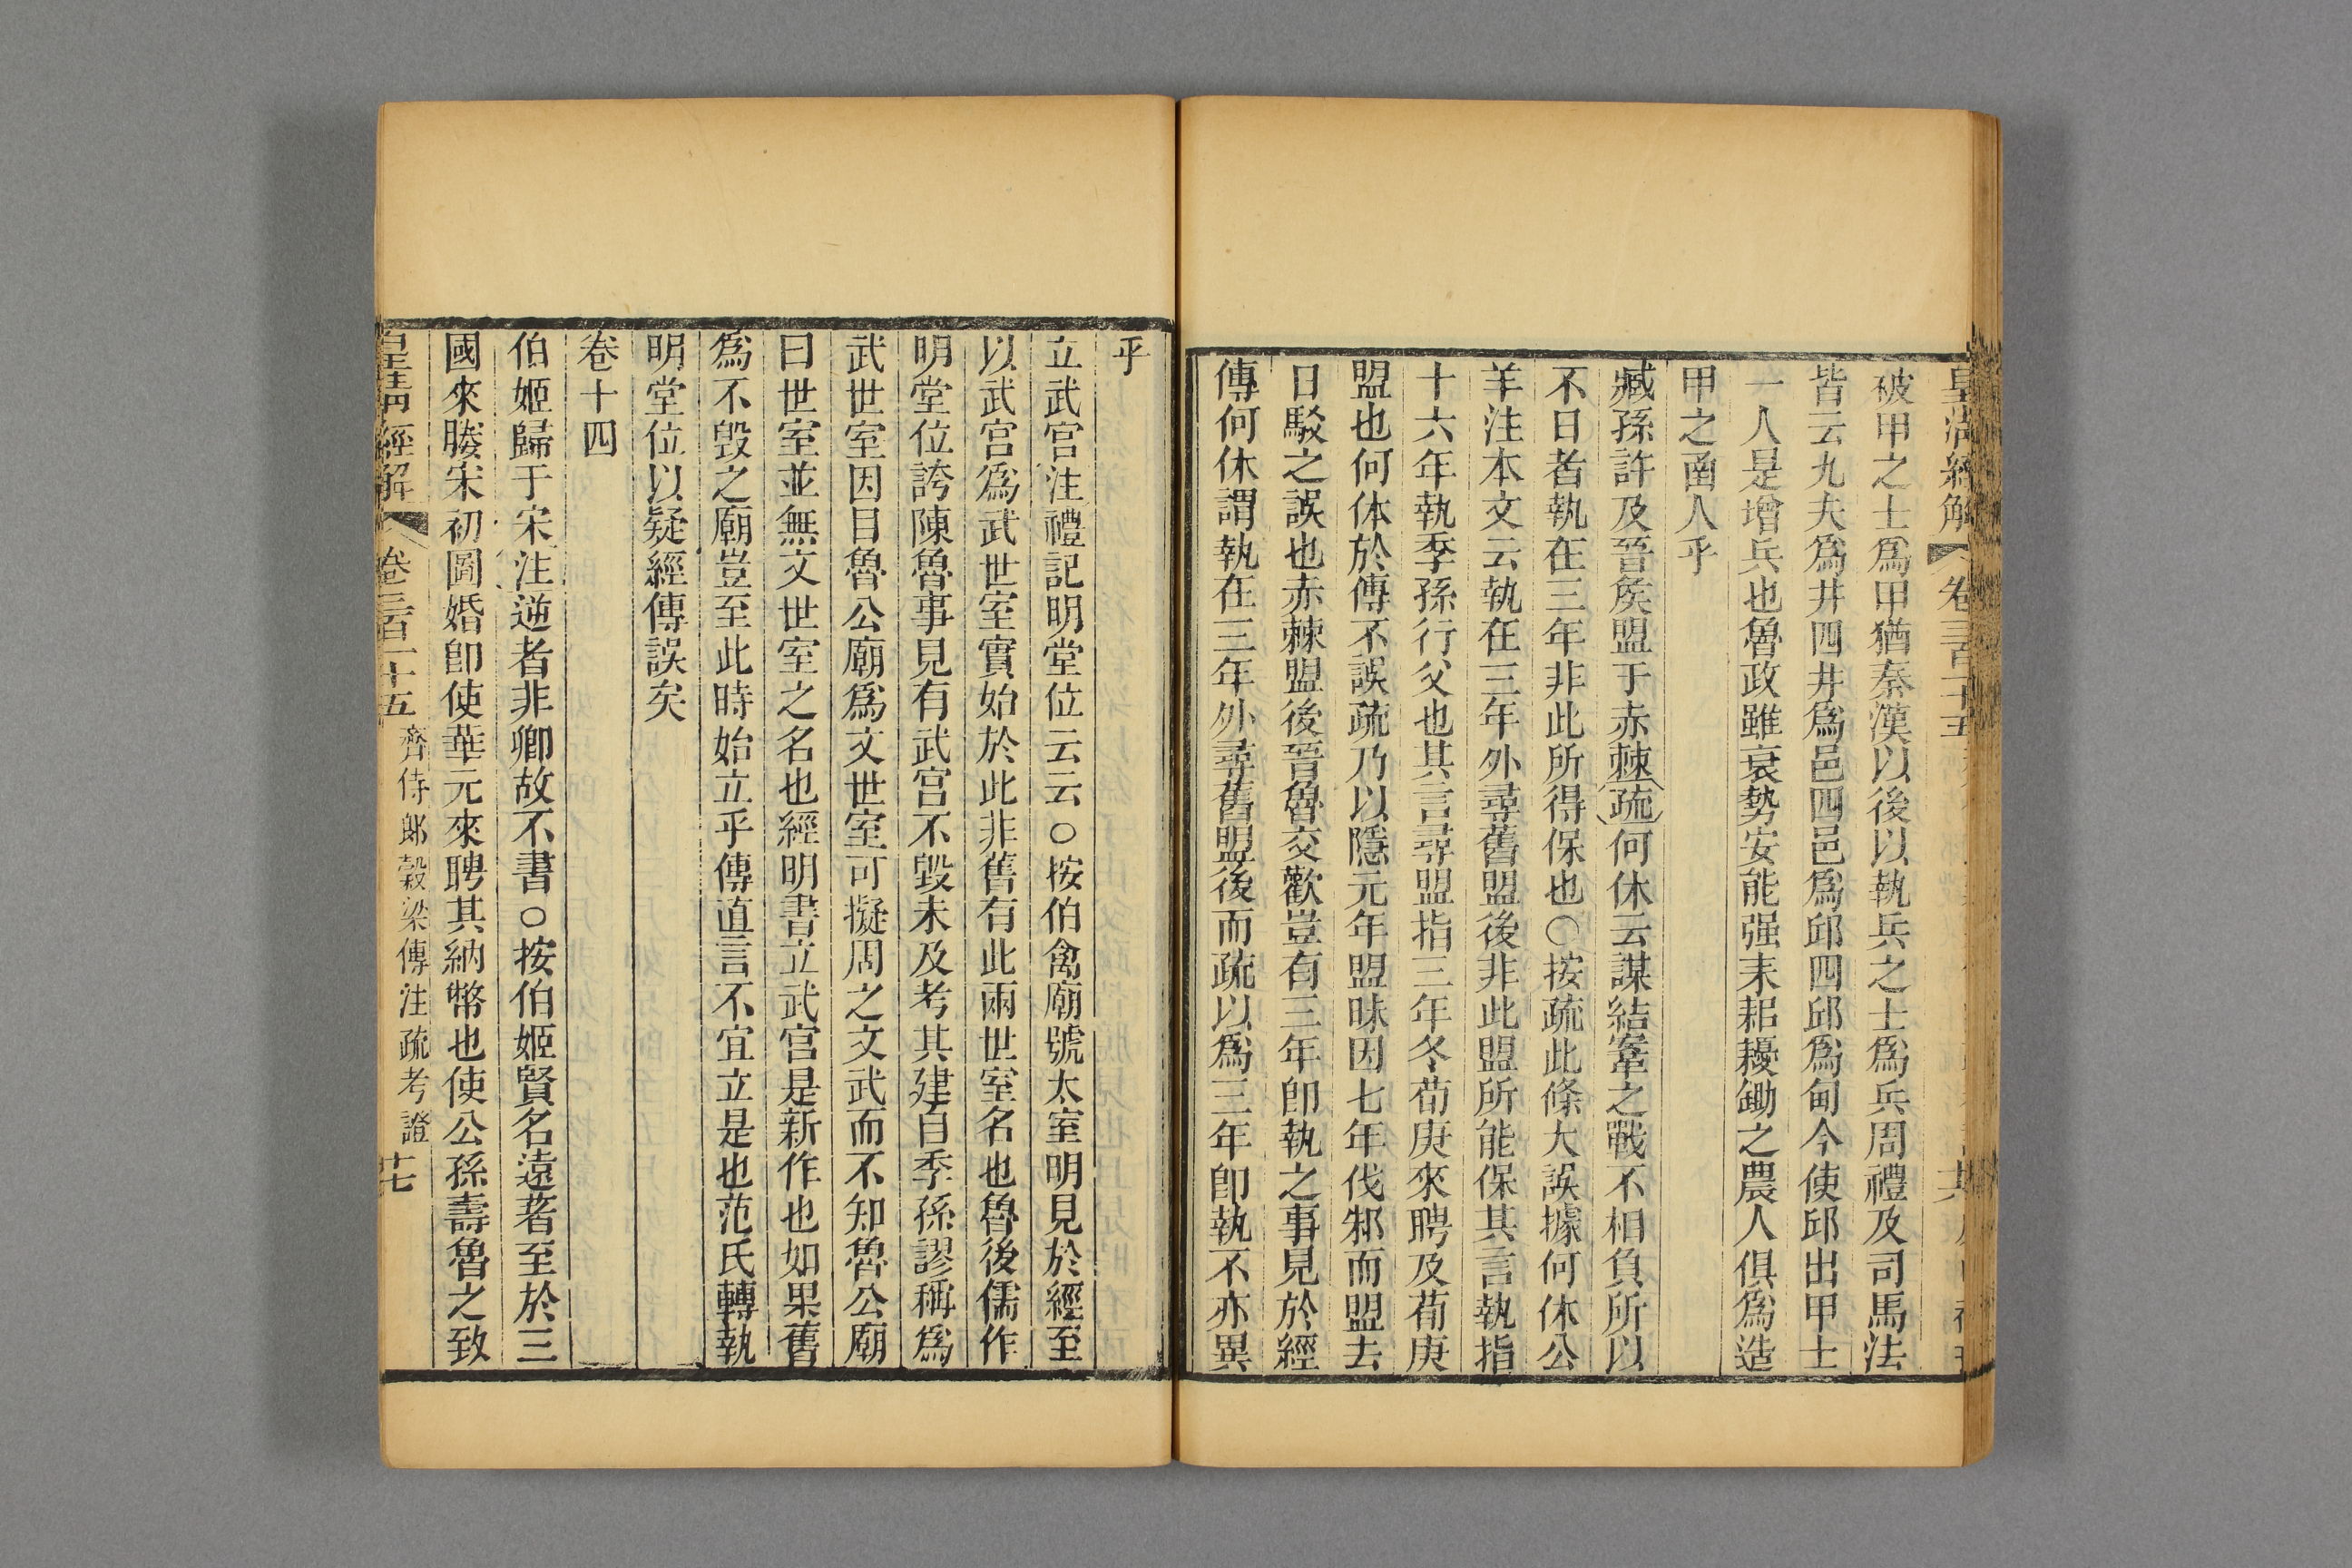 皇清經解 卷三百二十五
被甲之士爲甲猶秦漢以後以執兵之士爲兵周禮及司馬法
皆云九夫爲井四井爲邑四邑爲邱四邱爲甸今使邱出甲士
一人是增兵也魯政雖衰勢安能强耒耜耰鋤之農人俱爲造
甲之函人乎
臧孫許及晉矦盟于赤棘疏何休云謀結鞌之戰不相負所以
不日者執在三年非此所得保也○按疏此條大誤據何休公
羊注本文云執在三年外尋舊盟後非此盟所能保其言執指
十六年執季孫行父也其言尋盟指三年冬荀庚來聘及荀庚
盟也何休於傳不誤疏乃以隱元年盟昧因七年伐邾而盟去
日駁之誤也赤棘盟後晉魯交歡豈有三年卽執之事見於經
傳何休謂執在三年外尋舊盟後而疏以爲三年卽執不亦異
乎
立武宮注禮記明堂位云云○按伯禽廟號太室明見於經至
以武宮爲武世室實始於此非舊有此兩世室名也魯後儒作
明堂位誇陳魯事見有武宮不毀未及考其建自季孫謬稱爲
武世室因目魯公廟爲文世室可擬周之文武而不知魯公廟
曰世室並無文世室之名也經明書立武宮是新作也如果舊
爲不毀之廟豈至此時始立乎傳直言不宜立是也范氏轉執
明堂位以疑經傳誤矣
卷十四
伯姬歸于宋注逆者非卿故不書○按伯姬賢名遠著至於三
國來媵宋初圖婚卽使華元來聘其納幣也使公孫壽魯之致
皇清經解 卷三百二十五 齊侍郎穀梁傳注疏考證 十七